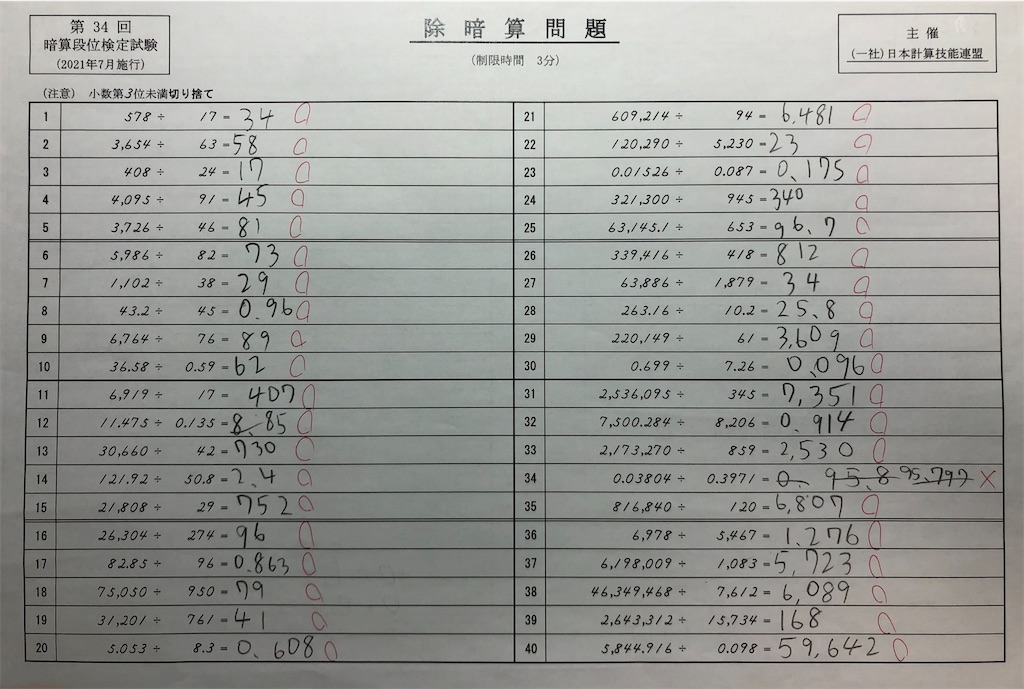 第 34 回
暗算段位検定試験
(2021年7月施行)
除 暗 算 問 題
(制限時間 3分)
主 催
(一社)日本計算技能連盟
(注意) 小数第3位未満切り捨て
1 578 ÷ 17 = 34
2 3,654 ÷ 63 = 58
3 408 ÷ 24 = 17
4 4,095 ÷ 91 = 45
5 3,726 ÷ 46 = 81
6 5,986 ÷ 82 = 73
7 1,102 ÷ 38 = 29
8 43.2 ÷ 45 = 0.96
9 6,764 ÷ 76 = 89
10 36.58 ÷ 0.59 = 62
11 6,919 ÷ 17 = 407
12 11.475 ÷ 0.135 = 85
13 30,660 ÷ 42 = 730
14 121.92 ÷ 50.8 = 2.4
15 21,808 ÷ 29 = 752
16 26,304 ÷ 274 = 96
17 82.85 ÷ 96 = 0.863
18 75,050 ÷ 950 = 79
19 31,201 ÷ 761 = 41
20 5.053 ÷ 8.3 = 0.608
21 609,214 ÷ 94 = 6,481
22 120,290 ÷ 5,230 = 23
23 0.01526 ÷ 0.087 = 0.175
24 321,300 ÷ 945 = 340
25 63,145.1 ÷ 653 = 96.7
26 339,416 ÷ 418 = 812
27 63,886 ÷ 1,879 = 34
28 263.16 ÷ 10.2 = 25.8
29 220,149 ÷ 61 = 3,609
30 0.699 ÷ 7.26 = 0.096
31 2,536,095 ÷ 345 = 7,351
32 7,500.284 ÷ 8,206 = 0.914
33 2,173,270 ÷ 859 = 2,530
34 0.03804 ÷ 0.3971 =
35 816,840 ÷ 120 = 6,807
36 6,978 ÷ 5,467 = 1.276
37 6,198,009 ÷ 1,083 = 5,723
38 46,349,468 ÷ 7,612 = 6,089
39 2,643,312 ÷ 15,734 = 168
40 5,844.916 ÷ 0.098 = 59,642